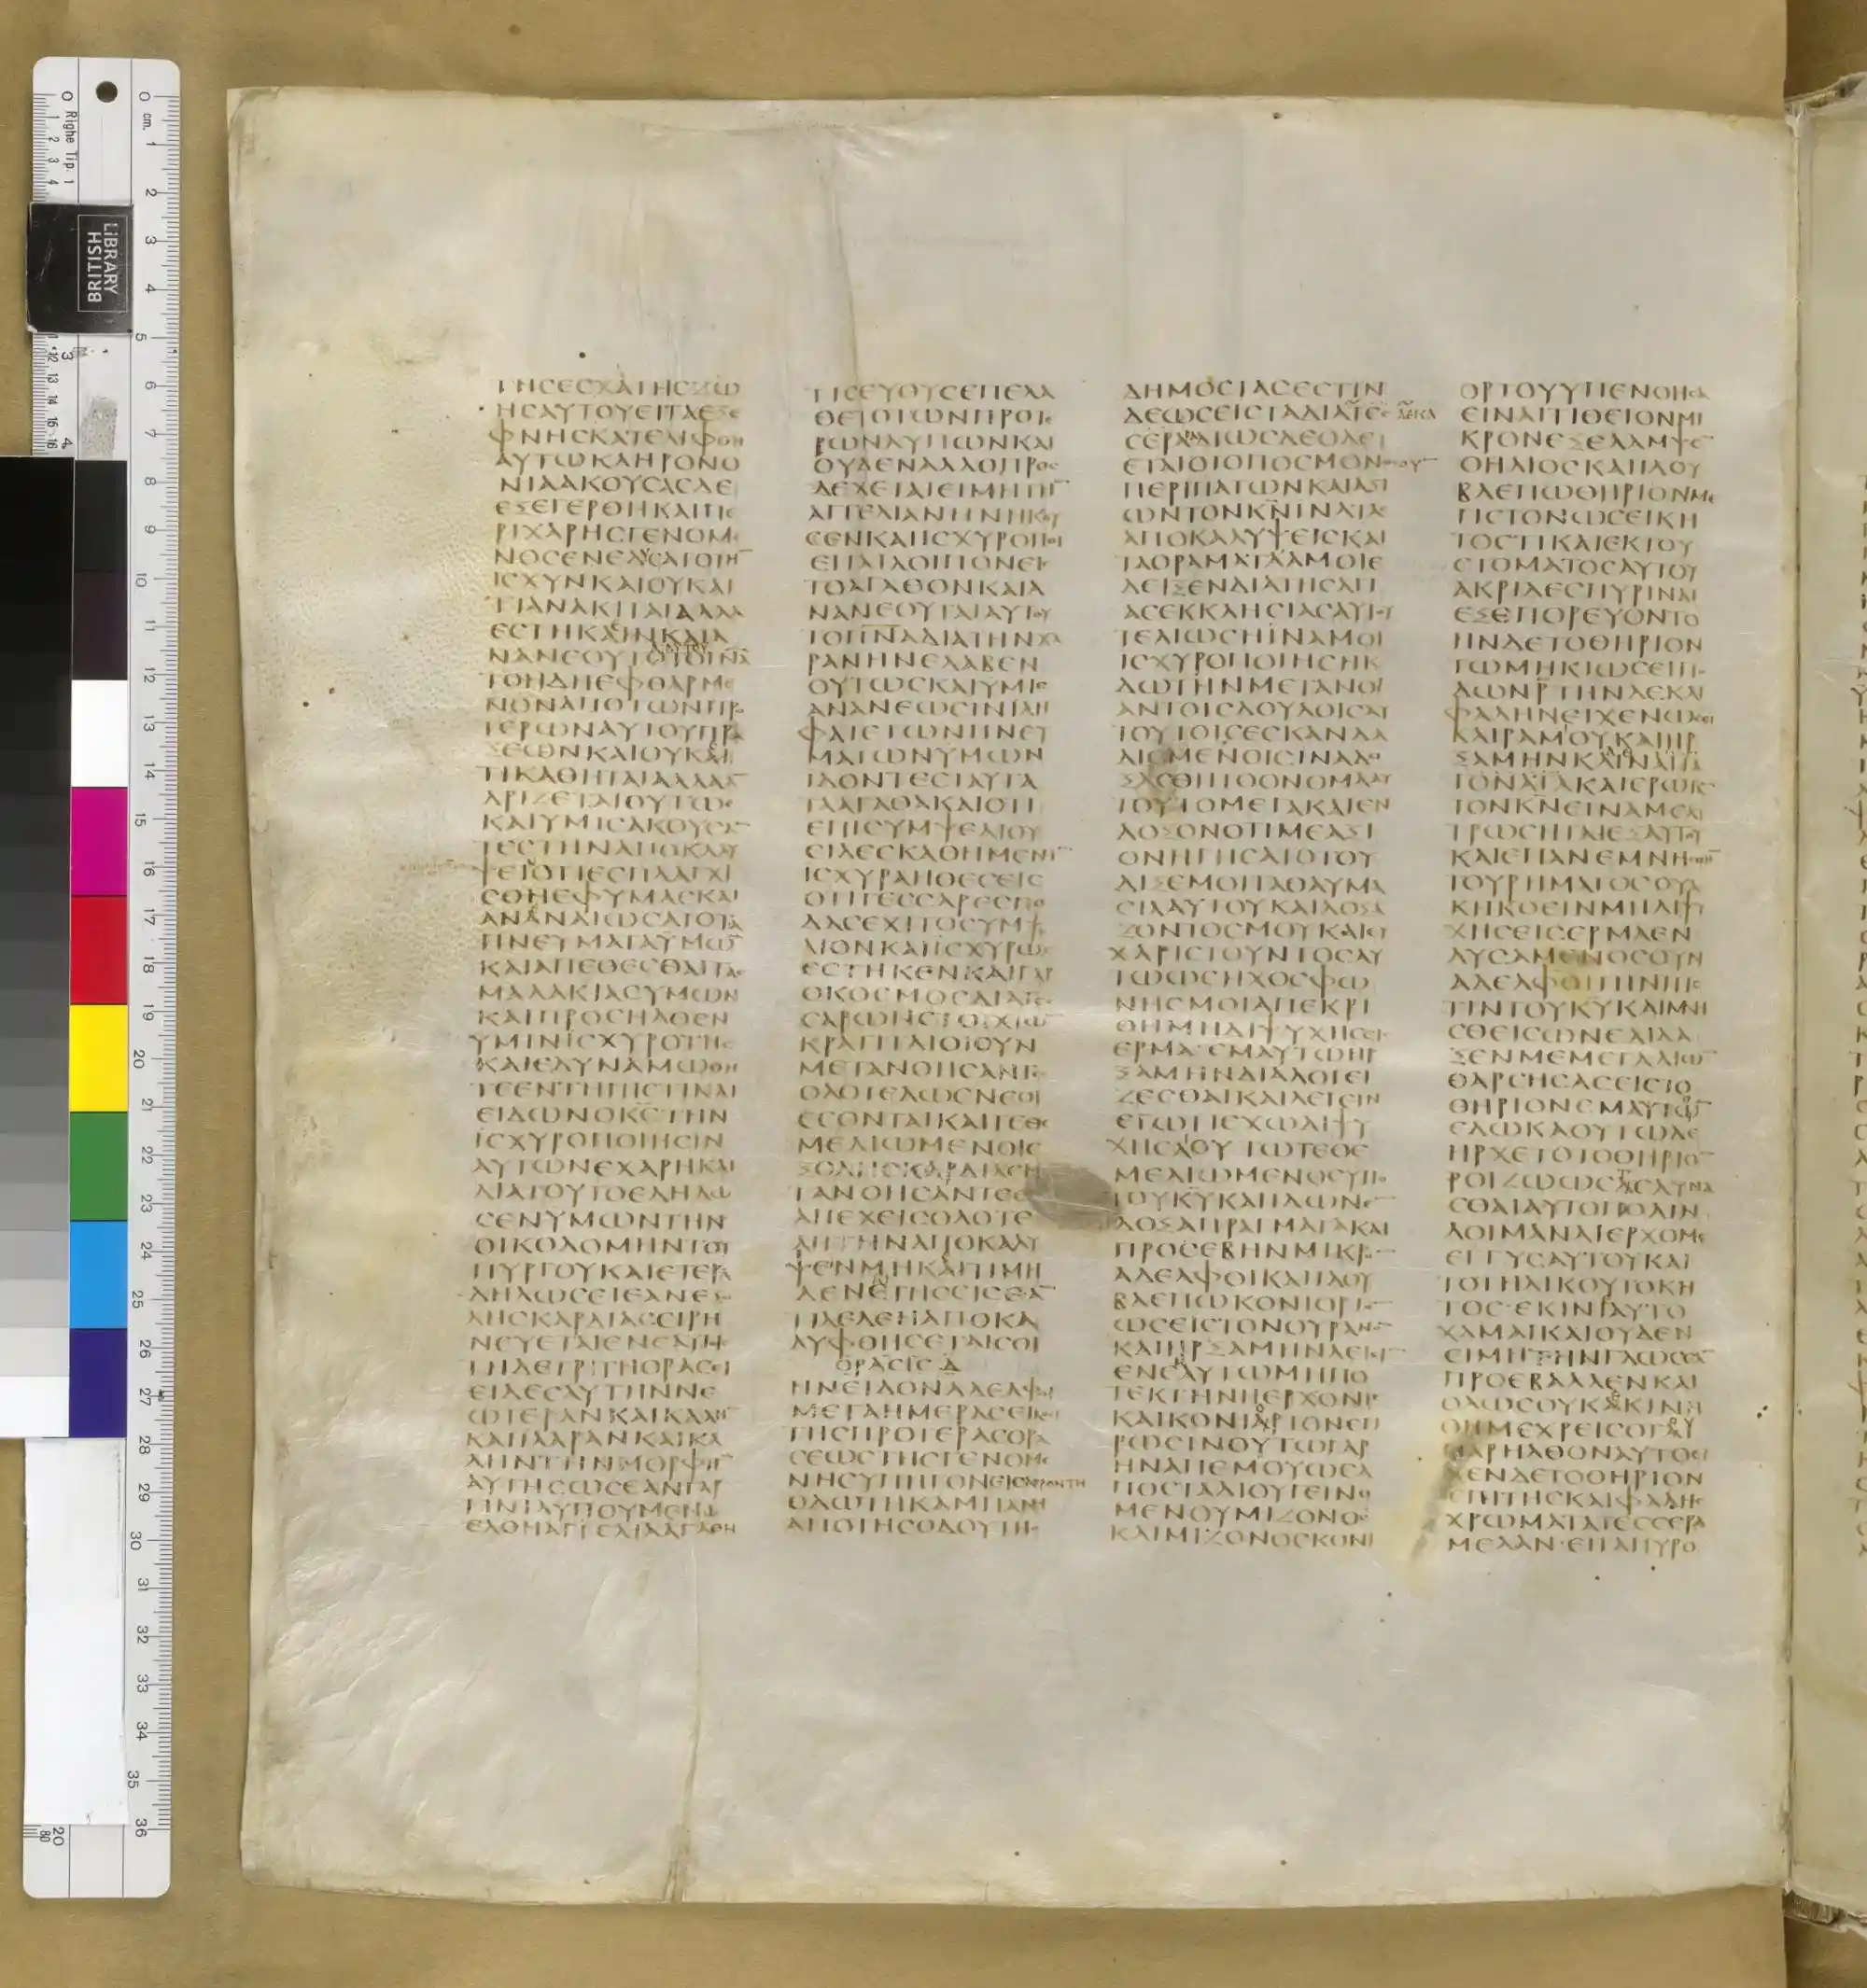 ΤΗϹΕϹΧΑΤΗϹΖΩ
ΗϹΑΥΤΟΥΕΙΤΑΕΞΕ
ΦΝΗϹΚΑΤΕΛΙΦΘΗ
ΑΥΤΩΚΛΗΡΟΝΟ
ΜΙΑΑΚΟΥϹΑϹΔΕ
ΕΞΕΓΕΡΘΗΚΑΙΠΕ
ΡΙΧΑΡΗϹΓΕΝΟΜΕ
ΝΟϹΕΝΕΔΥϹΑΤΟΤΗ
ΙϹΧΥΝΚΑΙΟΥΚΑΙ
ΤΙΑΝΑΚΙΤΑΙΑΛΛΑ
ΕϹΤΗΚΕΝΚΑΙΑ
ΝΑΝΕΟΥΤΕΤΟΠΝΑ
ΤΟΗΔΗΕΦΘΑΡΜΕ
ΝΟΝΑΠΟΤΩΝΠΡΟ
ΤΕΡΩΝΑΥΤΟΥΠΡΑ
ΞΕΩΝΚΑΙΟΥΚΕΤΙ
ΤΙΚΑΘΗΤΑΙΑΛΛΑΑΝ
ΔΡΙΖΕΤΑΙΟΥΤΩϹ
ΚΑΙΥΜΙϹΑΚΟΥϹΑΝ
ΤΕϹΤΗΝΑΠΟΚΑΛΥ
ΨΕΙΟΤΙΕϹΠΛΑΓΧΙ
ϹΘΗΕΦΥΜΑϹΚΑΙ
ΑΝΑΝΑΙΩϹΑΤΟΤΑ
ΠΝΕΥΜΑΤΑΥΜΩΝ
ΚΑΙΑΠΕΘΕϹΘΑΙΤΑϹ
ΜΑΛΑΚΙΑϹΥΜΩΝ
ΚΑΙΠΡΟϹΗΛΘΕΝ
ΥΜΙΝΙϹΧΥΡΟΤΗϹ
ΚΑΙΕΔΥΝΑΜΩΘΗ
ΤΕΕΝΤΗΠΙϹΤΙΚΑΙ
ΕΙΔΩΝΟΚϹΤΗΝ
ΙϹΧΥΡΟΠΟΙΗϹΙΝ
ΑΥΤΩΝΕΧΑΡΗΚΑΙ
ΔΙΑΤΟΥΤΟΕΔΗΛΩ
ϹΕΝΥΜΩΝΤΗΝ
ΟΙΚΟΔΟΜΗΝΤΟΥ
ΠΥΡΓΟΥΚΑΙΕΤΕΡΑ
ΔΗΛΩϹΕΙΕΑΝΕΞΟ
ΛΗϹΚΑΡΔΙΑϹΕΙΡΗ
ΝΕΥΕΤΑΙΕΝΕΑΥΤΗ
ΤΗΔΕΤΡΙΤΗΟΡΑϹΕΙ
ΕΙΔΕϹΑΥΤΗΝΝΕ
ΩΤΕΡΑΝΚΑΙΚΑΛΗ
ΚΑΙΙΛΑΡΑΝΚΑΙΚΑ
ΛΗΝΤΗΝΜΟΡΦΗΝ
ΑΥΤΗϹΩϹΕΑΝΓΑΡ
ΤΙΝΙΛΥΠΟΥΜΕΝΩ
ΕΛΘΗΑΓΓΕΛΙΑΑΓΑΘΗ
ΤΙϹΕΥΘΥϹΕΠΕΛΑ
ΘΕΤΟΤΩΝΠΡΟΤΕ
ΡΩΝΛΥΠΩΝΚΑΙ
ΟΥΔΕΝΑΛΛΟΠΡΟϹ
ΔΕΧΕΤΑΙΕΙΜΗΤΗΝ
ΑΓΓΕΛΙΑΝΗΝΗΚΟΥ
ϹΕΝΚΑΙΙϹΧΥΡΟΠΟΙ
ΕΙΤΑΙΛΟΙΠΟΝΕΙϹ
ΤΟΑΓΑΘΟΝΚΑΙΑ
ΝΑΝΕΟΥΤΑΙΑΥΤΟΥ
ΤΟΠΝΑΔΙΑΤΗΝΧΑ
ΡΑΝΗΝΕΛΑΒΕΝ
ΟΥΤΩϹΚΑΙΥΜΙϹ
ΑΝΑΝΕΩϹΙΝΙΛΗ
ΦΑΤΕΤΩΝΠΝΕΥ
ΜΑΤΩΝΥΜΩΝ
ΙΔΟΝΤΕϹΤΑΥΤΑ
ΤΑΑΓΑΘΑΚΑΙΟΤΙ
ΕΠΙϹΥΜΨΕΛΙΟΥ
ΕΙΔΕϹΚΑΘΗΜΕΝΗΝ
ΙϹΧΥΡΑΗΘΕϹΕΙϹ
ΟΤΙΤΕϹϹΑΡΕϹΠΟ
ΔΑϹΕΧΙΤΟϹΥΜΨΕ
ΛΙΟΝΚΑΙΙϹΧΥΡΩϹ
ΕϹΤΗΚΕΝΚΑΙΓΑΡ
ΟΚΟϹΜΟϹΔΙΑΤΕϹ
ϹΑΡΩΝϹΤΟΙΧΙΩΝ
ΚΡΑΤΙΤΑΙΟΙΟΥΝ
ΜΕΤΑΝΟΗϹΑΝΤΕϹ
ΟΛΟΤΕΛΩϹΝΕΟΙ
ΕϹΟΝΤΑΙΚΑΙΤΕΘΕ
ΜΕΛΙΩΜΕΝΟΙΕ
ΞΟΛΗϹΚΑΡΔΙΑϹΜΕ
ΤΑΝΟΗϹΑΝΤΕϹ
ΑΠΕΧΕΙϹΟΛΟΤΕ
ΛΗΤΗΝΑΠΟΚΑΛΥ
ΨΕΝΜΗΚΕΤΙΜΗ
ΔΕΝΕΤΗϹϹΙϹΕΑΝ
ΤΙΔΕΔΕΗΑΠΟΚΑ
ΛΥΦΘΗϹΕΤΑΙϹΟΙ
ΟΡΑϹΙϹΔ
ΗΝΕΙΔΟΝΑΔΕΛΦΟΙ
ΜΕΤΑΗΜΕΡΑϹΕΙΚΟϹΙ
ΤΗϹΠΡΟΤΕΡΑϹΟΡΑ
ϹΕΩϹΤΗϹΓΕΝΟΜΕ
ΝΗϹΥΠΗΓΟΝΕΙϹΑΓΡΟΝΤΗ
ΟΔΩΤΗΚΑΜΠΑΝΗ
ΑΠΟΤΗϹΟΔΟΥΤΗϹ
ΔΗΜΟϹΙΑϹΕϹΤΙΝ
ΔΕΩϹΕΙϹΤΑΔΙΑΔΕΚΑ
ϹΕΡΑΔΙΩϹΔΕΟΔΕΥ
ΕΤΑΙΟΤΟΠΟϹΜΟΝΟϹΟΥΝ
ΠΕΡΙΠΑΤΩΝΚΑΙΑΞΙ
ΩΝΤΟΝΚΝΙΝΑΤΑϹ
ΑΠΟΚΑΛΥΨΕΙϹΚΑΙ
ΤΑΟΡΑΜΑΤΑΑΜΟΙΕ
ΔΕΙΞΕΝΔΙΑΤΗϹΑΓΙ
ΑϹΕΚΚΛΗϹΙΑϹΑΥΤΟΥ
ΤΕΛΙΩϹΗΙΝΑΜΟΙ
ΙϹΧΥΡΟΠΟΙΗϹΗΚ
ΔΩΤΗΝΜΕΤΑΝΟΙ
ΑΝΤΟΙϹΔΟΥΛΟΙϹΑΥ
ΤΟΥΤΟΙϹΕϹΚΑΝΔΑ
ΛΙϹΜΕΝΟΙϹΙΝΑΔΟ
ΞΑϹΘΗΤΟΟΝΟΜΑΑΥ
ΤΟΥΤΟΜΕΓΑΚΑΙΕΝ
ΔΟΞΟΝΟΤΙΜΕΑΞΙ
ΟΝΗΓΗϹΑΤΟΤΟΥ
ΔΙΞΕΜΟΙΤΑΘΑΥΜΑ
ϹΙΑΑΥΤΟΥΚΑΙΔΟΞΑ
ΖΟΝΤΟϹΜΟΥΚΑΙΕΥ
ΧΑΡΙϹΤΟΥΝΤΟϹΑΥ
ΤΩΩϹΗΧΟϹΦΩ
ΝΗϹΜΟΙΑΠΕΚΡΙ
ΘΗΜΗΔΙΨΥΧΗϹΕΙϹ
ΕΡΜΑΕΝΕΜΑΥΤΩΗΡ
ΞΑΜΗΝΔΙΑΛΟΓΕΙ
ΖΕϹΘΑΙΚΑΙΛΕΓΕΙΝ
ΕΓΩΤΙΕΧΩΔΙΨΥ
ΧΗϹΑΙΟΥΤΩΤΕΘΕ
ΜΕΛΙΩΜΕΝΟϹΥΠΟ
ΤΟΥΚΥΚΑΙΙΔΩΝΕΝ
ΔΟΞΑΠΡΑΓΜΑΤΑΚΑΙ
ΠΡΟϹΕΒΗΝΜΙΚΡΟΝ
ΑΔΕΛΦΟΙΚΑΙΙΔΟΥ
ΒΛΕΠΩΚΟΝΙΟΡΤΟΝ
ΩϹΕΙϹΤΟΝΟΥΡΑΝΟΝ
ΚΑΙΗΡΞΑΜΗΝΛΕΓΙΝ
ΕΝΕΑΥΤΩΜΗΠΟ
ΤΕΚΤΗΝΗΕΡΧΟΝΤΕ
ΚΑΙΚΟΝΙΟΡΤΟΝΕΓΙ
ΡΩϹΙΝΟΥΤΩΓΑΡ
ΗΝΑΠΕΜΟΥΩϹΑ
ΠΟϹΤΑΔΙΟΥΓΕΙΝΟ
ΜΕΝΟΥΜΙΖΟΝΟϹ
ΚΑΙΜΙΖΟΝΟϹΚΟΝΙ
ΟΡΤΟΥΥΠΕΝΟΗϹΑ
ΕΙΝΑΙΤΙΘΕΙΟΝΜΙ
ΚΡΟΝΕΞΕΛΑΜΨΕΝ
ΟΗΛΙΟϹΚΑΙΙΔΟΥ
ΒΛΕΠΩΘΗΡΙΟΝΜΕ
ΓΙϹΤΟΝΩϹΕΙΚΗ
ΤΟϹΤΙΚΑΙΕΚΤΟΥ
ϹΤΟΜΑΤΟϹΑΥΤΟΥ
ΑΚΡΙΔΕϹΠΥΡΙΝΑΙ
ΕΞΕΠΟΡΕΥΟΝΤΟ
ΗΝΔΕΤΟΘΗΡΙΟΝ
ΤΩΜΗΚΙΩϹΕΙΠΟ
ΔΩΝΡΤΗΝΔΕΚΑΙ
ΦΑΛΗΝΕΙΧΕΝΩϹΚΕΙ
ΚΑΙΡΑΜΟΥΚΑΙΗΡ
ΞΑΜΗΝΚΛΑΙΙΝ
ΤΟΝΚΝΕΙΝΑΜΕΛΥ
ΤΡΩϹΗΤΑΙΕΞΑΥΤΟΥ
ΚΑΙΕΠΑΝΕΜΝΗϹΘΗΝ
ΤΟΥΡΗΜΑΤΟϹΟΥΑ
ΚΗΚΟΕΙΝΜΗΔΙΨΥ
ΧΗϹΕΙϹΕΡΜΑΕΝ
ΔΥϹΑΜΕΝΟϹΟΥΝ
ΑΔΕΛΦΟΙΤΗΝΠΙϹ
ΤΙΝΤΟΥΚΥΚΑΙΜΝΗ
ϹΘΕΙϹΩΝΕΔΙΔΑ
ΞΕΝΜΕΜΕΓΑΛΙΩΝ
ΘΑΡϹΗϹΑϹΕΙϹΤΟ
ΘΗΡΙΟΝΕΜΑΥΤΟΝ
ΕΔΩΚΑΟΥΤΩΔΕ
ΗΡΧΕΤΟΤΟΘΗΡΙΟΝ
ΡΟΙΖΩΩϹΤΕΔΥΝΑ
ϹΘΑΙΑΥΤΟΠΟΛΙΝ
ΛΟΙΜΑΝΑΙΕΡΧΟΜΕ
ΕΓΓΥϹΑΥΤΟΥΚΑΙ
ΤΟΤΗΛΙΚΟΥΤΟΚΗ
ΤΟϹΕΚΙΝΙΑΥΤΟ
ΧΑΜΑΙΚΑΙΟΥΔΕΝ
ΕΙΜΗΤΗΝΓΛΩϹϹΑΝ
ΠΡΟΕΒΑΛΛΕΝΚΑΙ
ΟΛΩϹΟΥΚΕΚΙΝΗ
ΘΗΜΕΧΡΕΙϹΟΤΟΥ
ΠΑΡΗΛΘΟΝΑΥΤΟ
ΧΕΝΔΕΤΟΘΗΡΙΟΝ
ΕΠΙΤΗϹΚΑΙΦΑΛΗϹ
ΧΡΩΜΑΤΑΤΕϹϹΕΡΑ
ΜΕΛΑΝ·ΕΙΤΑΠΥΡΟ
BRITISH
LIBRARY
Righe Tip. 1
cm.